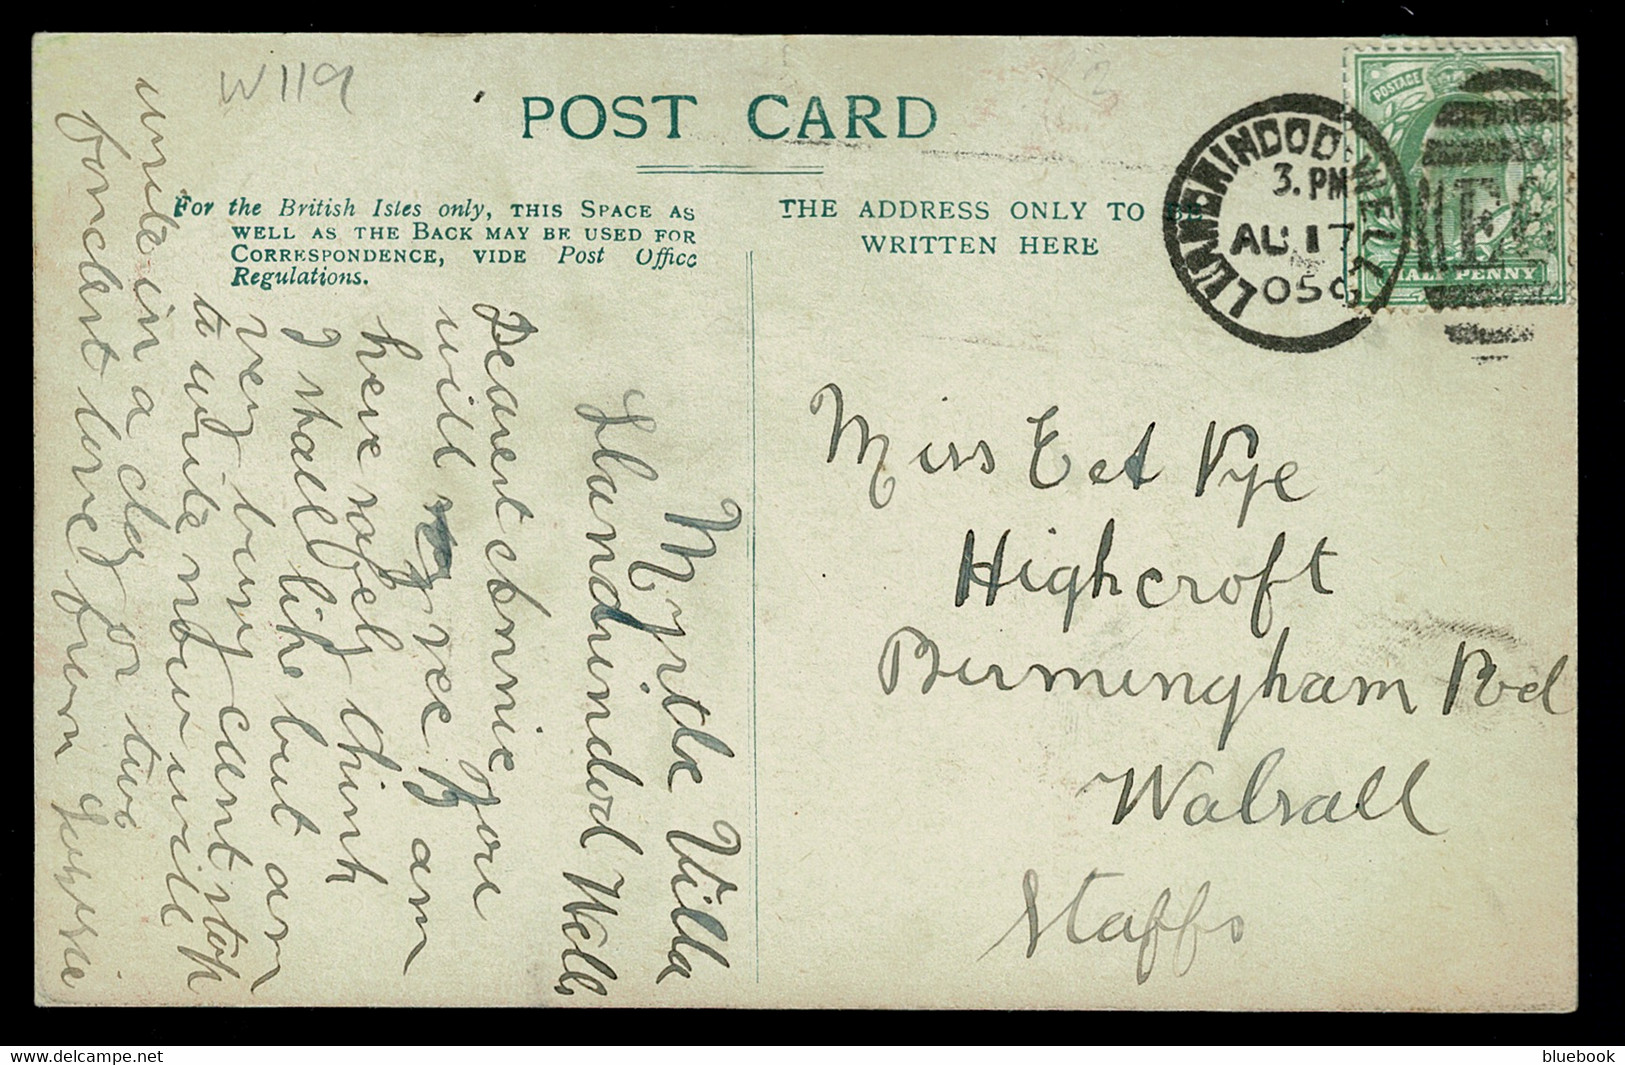 W119
POST CARD
For the British Isles only, THIS SPACE AS
WELL AS THE BACK MAY BE USED FOR
CORRESPONDENCE, VIDE Post Office
Regulations.
THE ADDRESS ONLY TO BE
WRITTEN HERE
LLANDRINDOD-WELLS
3. PM
AU 17
05
POSTAGE
HALF PENNY
Myrtle Villa
Llandrindod Wells
Dearest Annie you
will see I am
here safely think
I shall like but am
very busy cant stop
to write now will
write in a day or two
fondest love from
Miss Pye
Highcroft
Birmingham Rd
Walsall
Staffs
bluebook